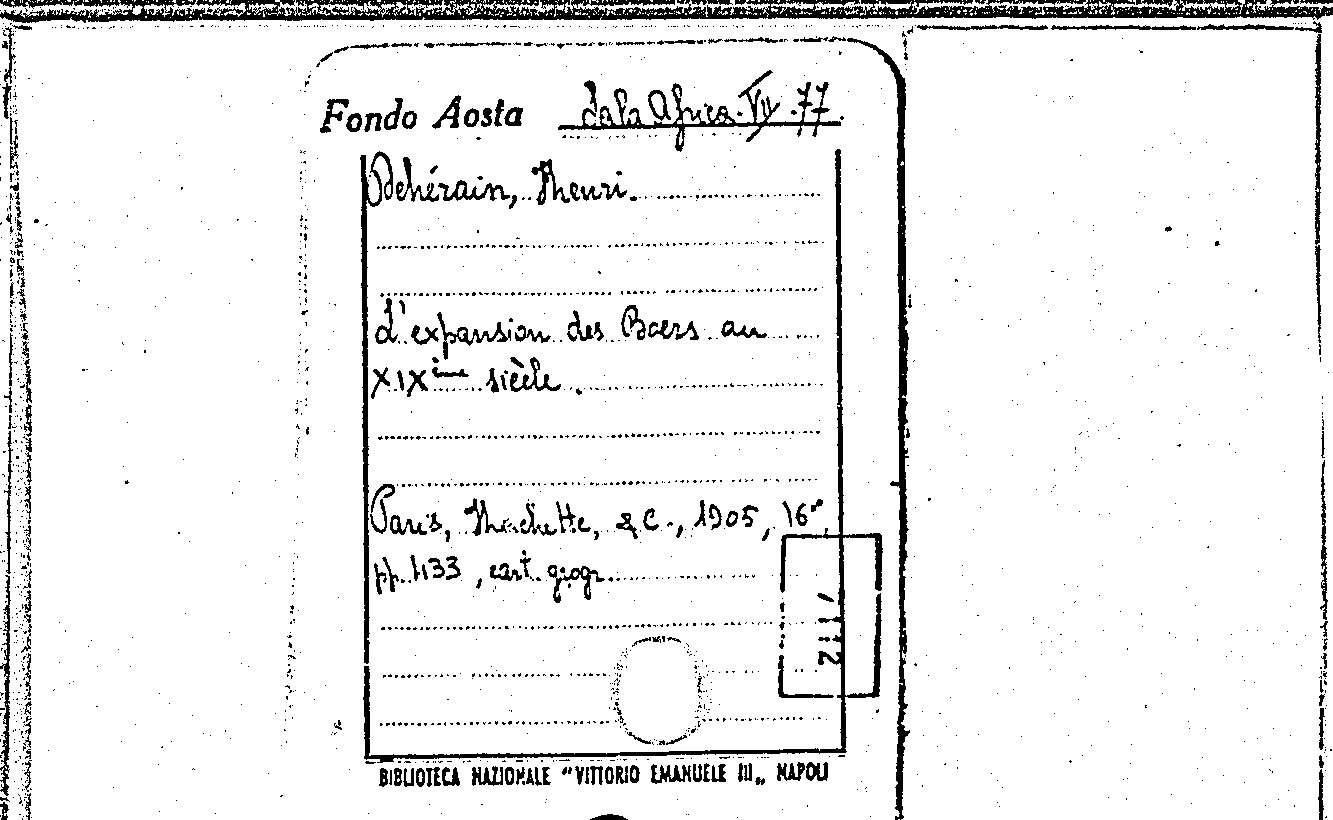 Fondo Aosta Sala Africa. VII. 77.
Dehérain, Henri.
L'expansion des Boers au
XIXème siècle.
Paris, Hachette, & C., 1905, 16°,
pp. 433, cart. geogr.
BIBLIOTECA NAZIONALE "VITTORIO EMANUELE III„ NAPOLI